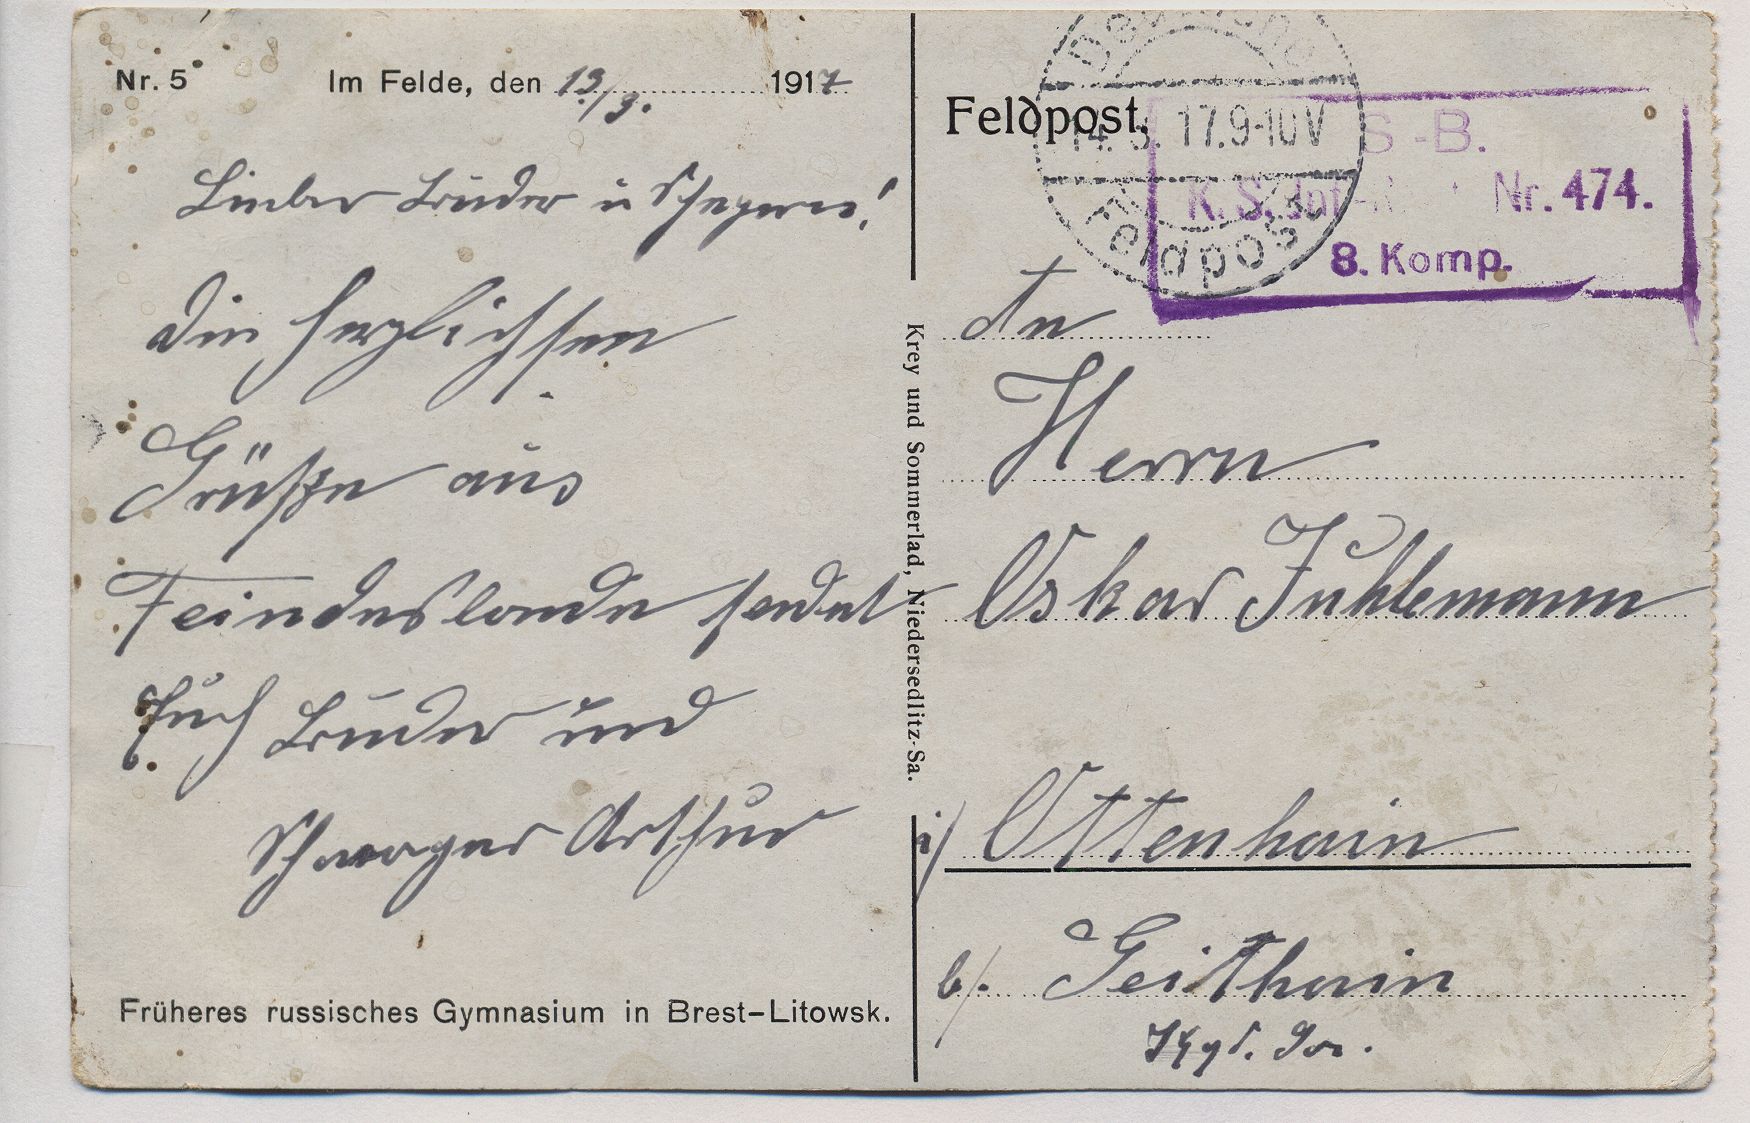 Nr. 5
Im Felde, den 13./3. 1917
Lieber Bruder u
die herzlichsten
Grüße aus
Feindeslande sendet
Euch Bruder und
Schwager Arthur
Früheres russisches Gymnasium in Brest-Litowsk.
Krey und Sommerlad, Niedersedlitz-Sa.
Feldpost.
14. 3. 17. 9-10 V
Feldpost
S.-B.
K. S. Inf. Nr. 474.
8. Komp.
An
Herrn
Oskar Juhlemann
i/ Ottenhain
b/. Geithain